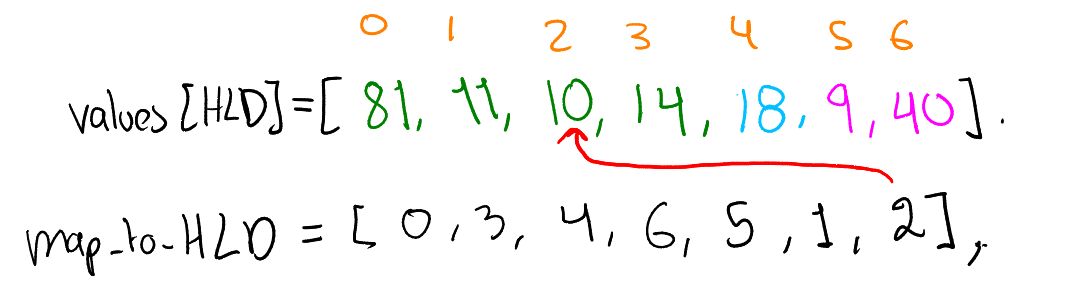 0 1 2 3 4 5 6
values [HLD]=[ 81, 11, 10, 14, 18, 9, 40].
map_to_HLD = [ 0, 3, 4, 6, 5, 1, 2],